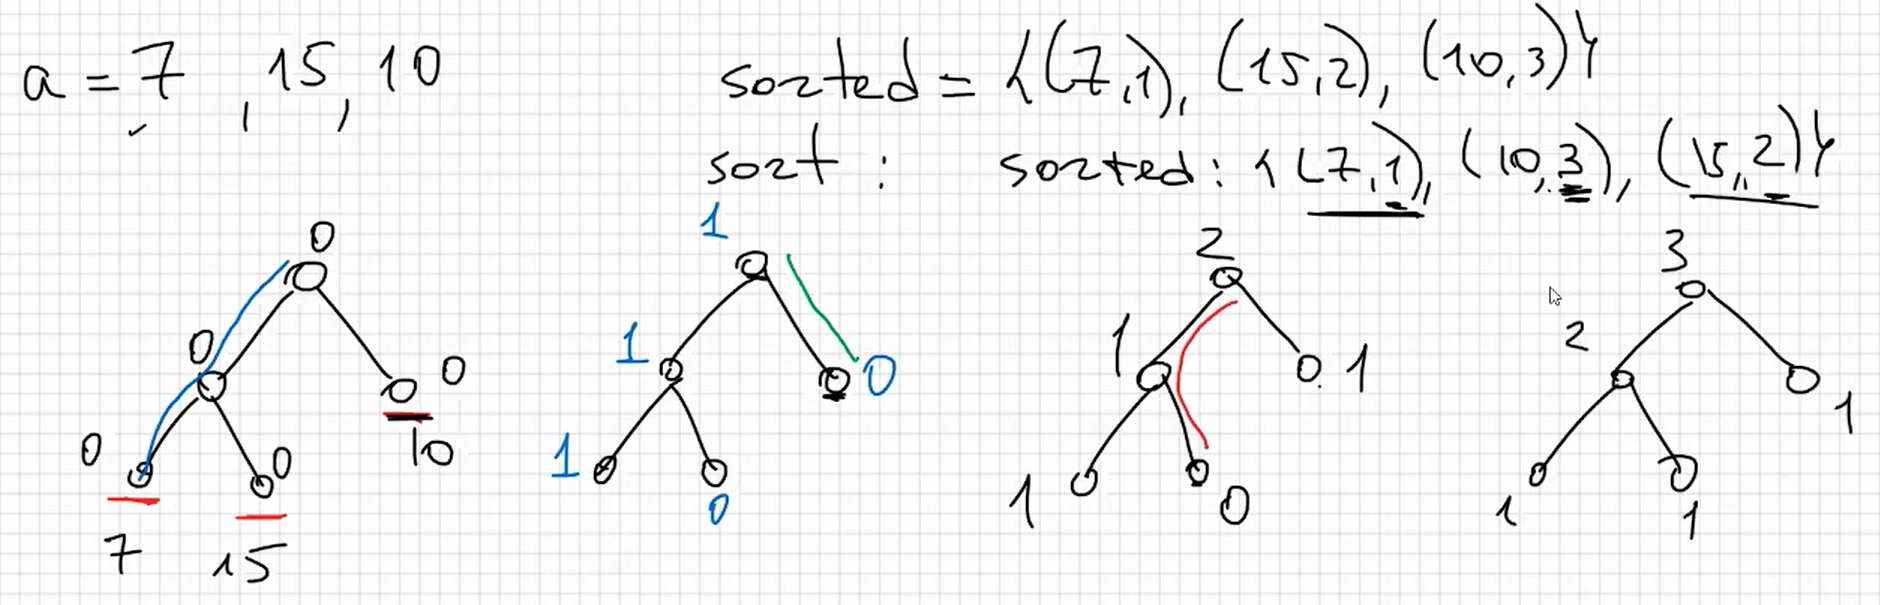 a = 7 , 15 , 10
sorted = {(7,1), (15,2), (10,3)}
sort : sorted: {(7,1), (10,3), (15,2)}
0 1 2 3
0 0 1 0 1 1 2 1
0 0 10 1 0 1 0 1 1
7 15